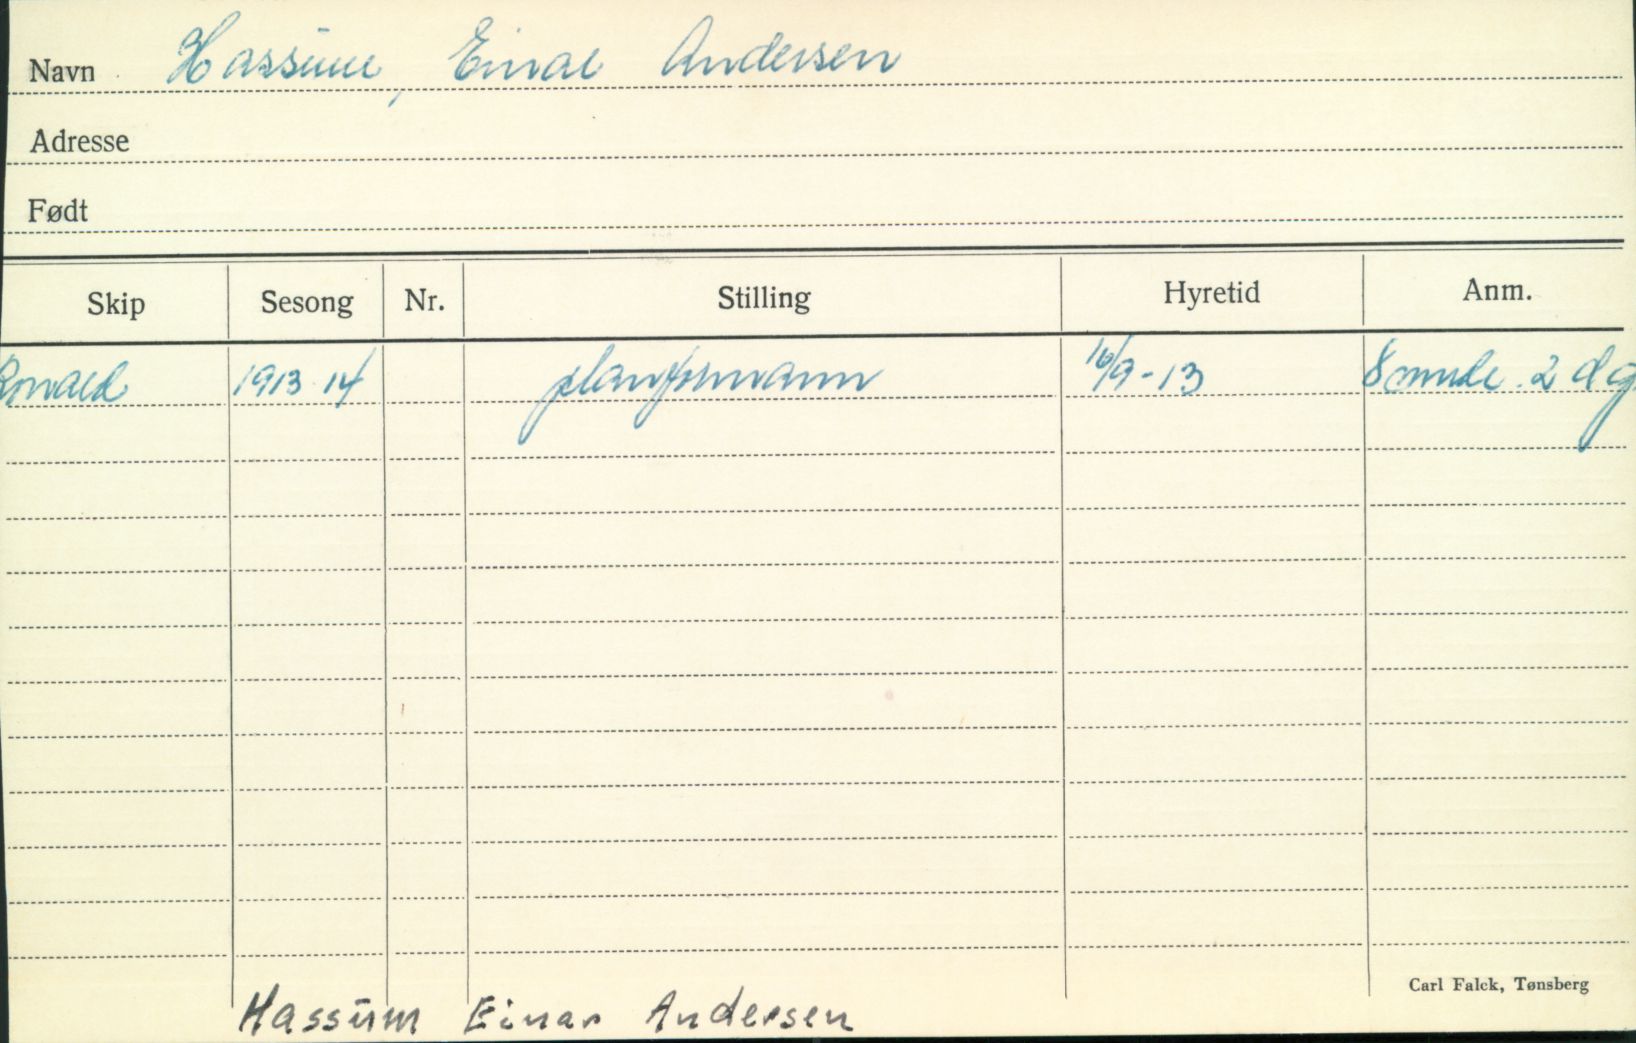 Navn Hassum, Einar Andersen
Adresse
Født
Skip Sesong Nr. Stilling Hyretid Anm.
Ronald 1913 14 planformann 16/9-13 8 mnde. 2 dg
Carl Falck, Tønsberg
Hassum Einar Andersen